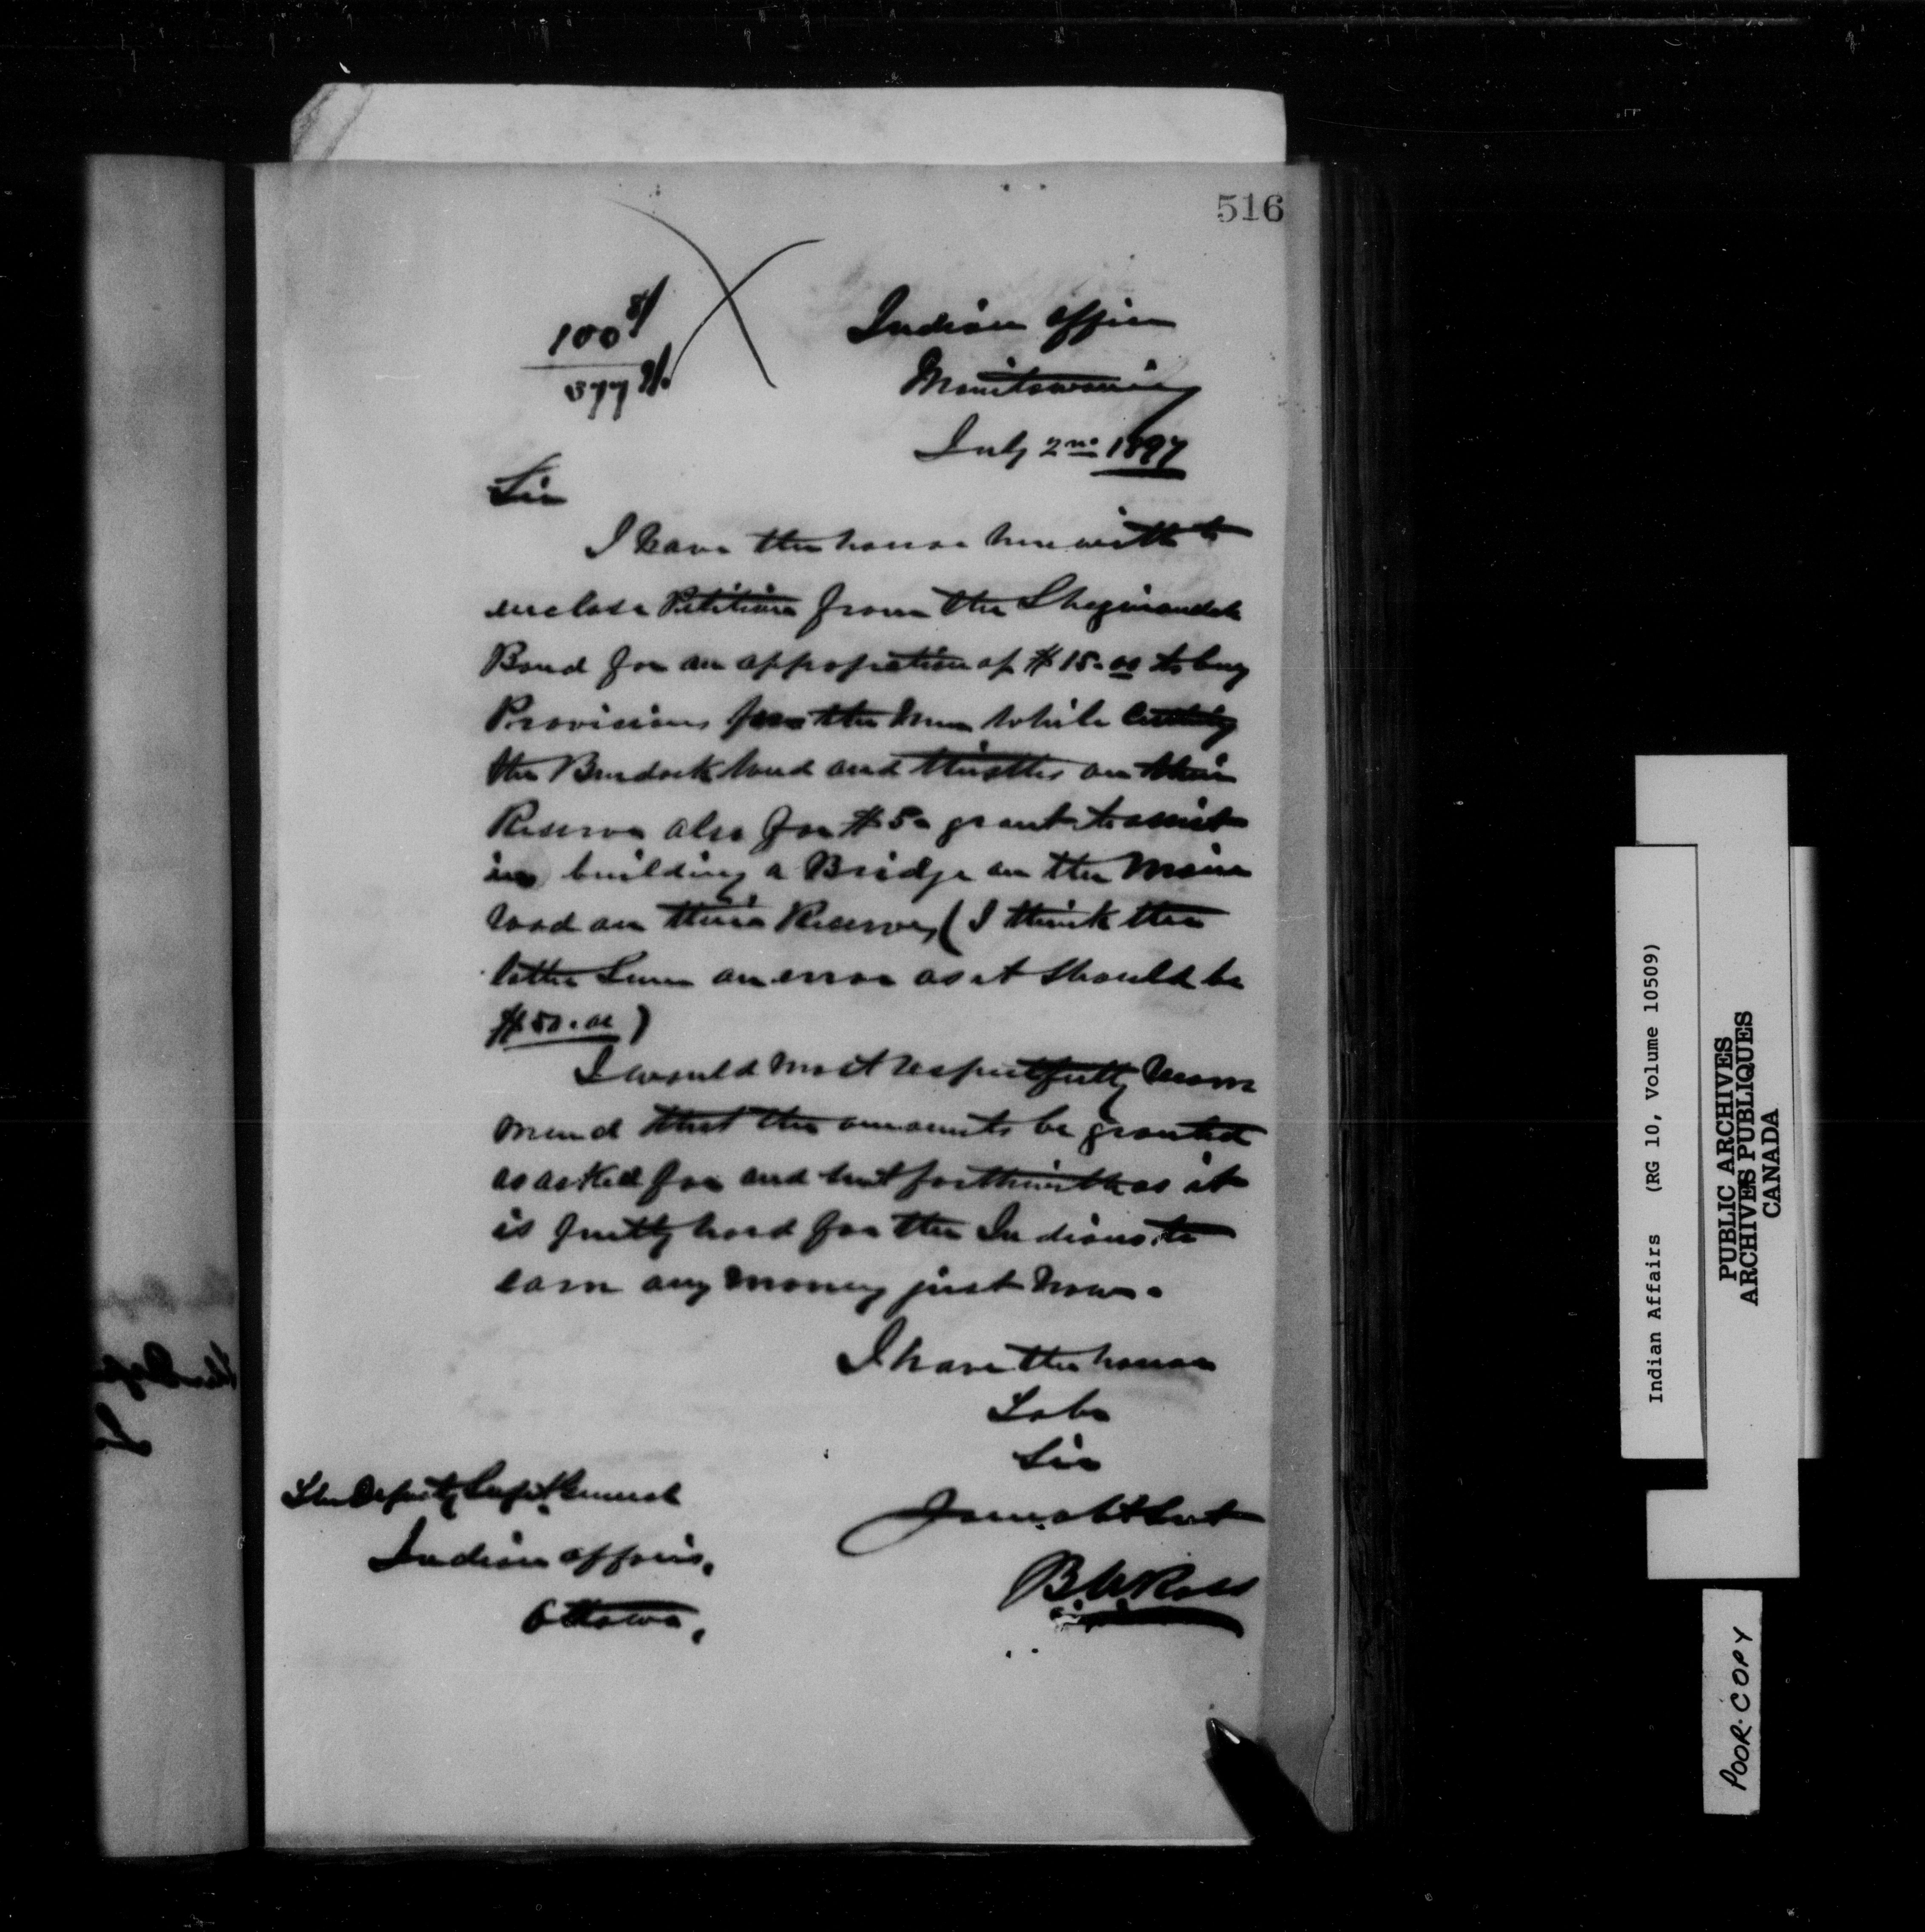 516
Indian Office
Manitowaning
July 2nd 1897
Sir
I have the honor herewith to
enclose Petition from the Sheguiandah
Band for an appropriation of $15.00 to buy
Provisions for the men while Cutting
the Burdock and thistles on their
Reserve also for $5. grant to assist
in building a Bridge on the Main
road on their Reserve, (I think the
latter Sum an error as it should be
$50.00)
I would most respectfully recom
mend that the amounts be granted
as asked for and sent forthwith as it
is pretty hard for the Indians to
earn any money just now.
I have the honor
to be
Sir
Your obt Svt
B W Ross
The Deputy Supt General
Indian Affairs.
Ottawa.
Indian Affairs (RG 10, Volume 10509)
PUBLIC ARCHIVES
ARCHIVES PUBLIQUES
CANADA
POOR COPY